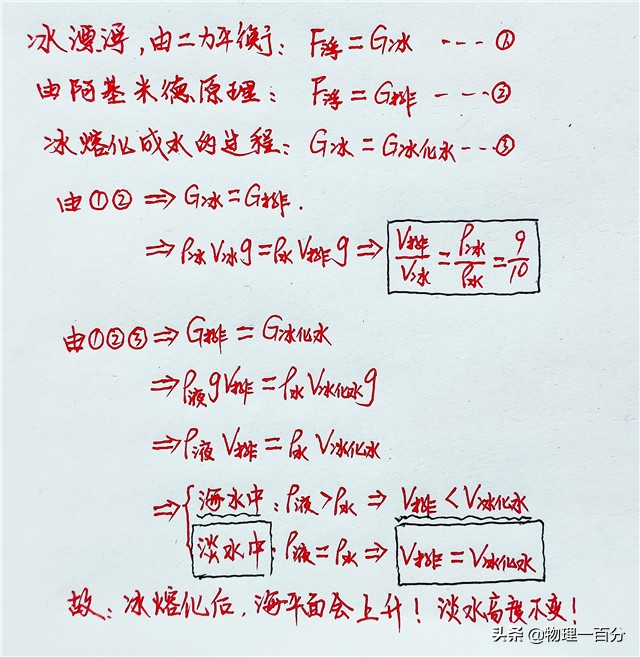 冰漂浮,由二力平衡: F浮=G冰 ---- ①
由阿基米德原理: F浮=G排 ---- ②
冰熔化成水的过程: G冰=G冰化水 --- ③
由①② ⇒ G冰=G排.
⇒ ρ冰V冰g=ρ水V排g ⇒ V排/V冰=ρ冰/ρ水=9/10
由①②③ ⇒ G排=G冰化水
⇒ ρ液gV排=ρ水V冰化水g
⇒ ρ液V排=ρ水V冰化水
⇒ { 海水中: ρ液>ρ水 ⇒ V排<V冰化水
淡水中: ρ液=ρ水 ⇒ V排=V冰化水
故: 冰熔化后, 海平面会上升! 淡水高度不变!
头条 @物理一百分